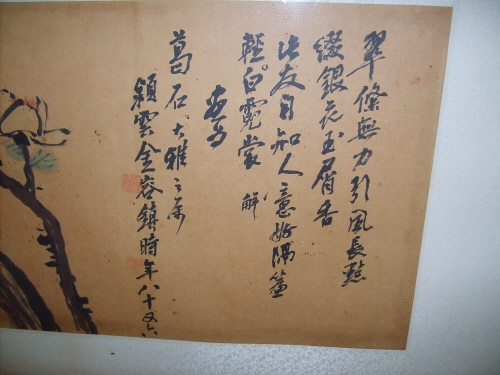 翠條無力引風長點
綴銀花玉屑香
友自知人意好隔簾
輕白霓裳 解
葛石大雅之
穎雲金容鎮時年八十又六